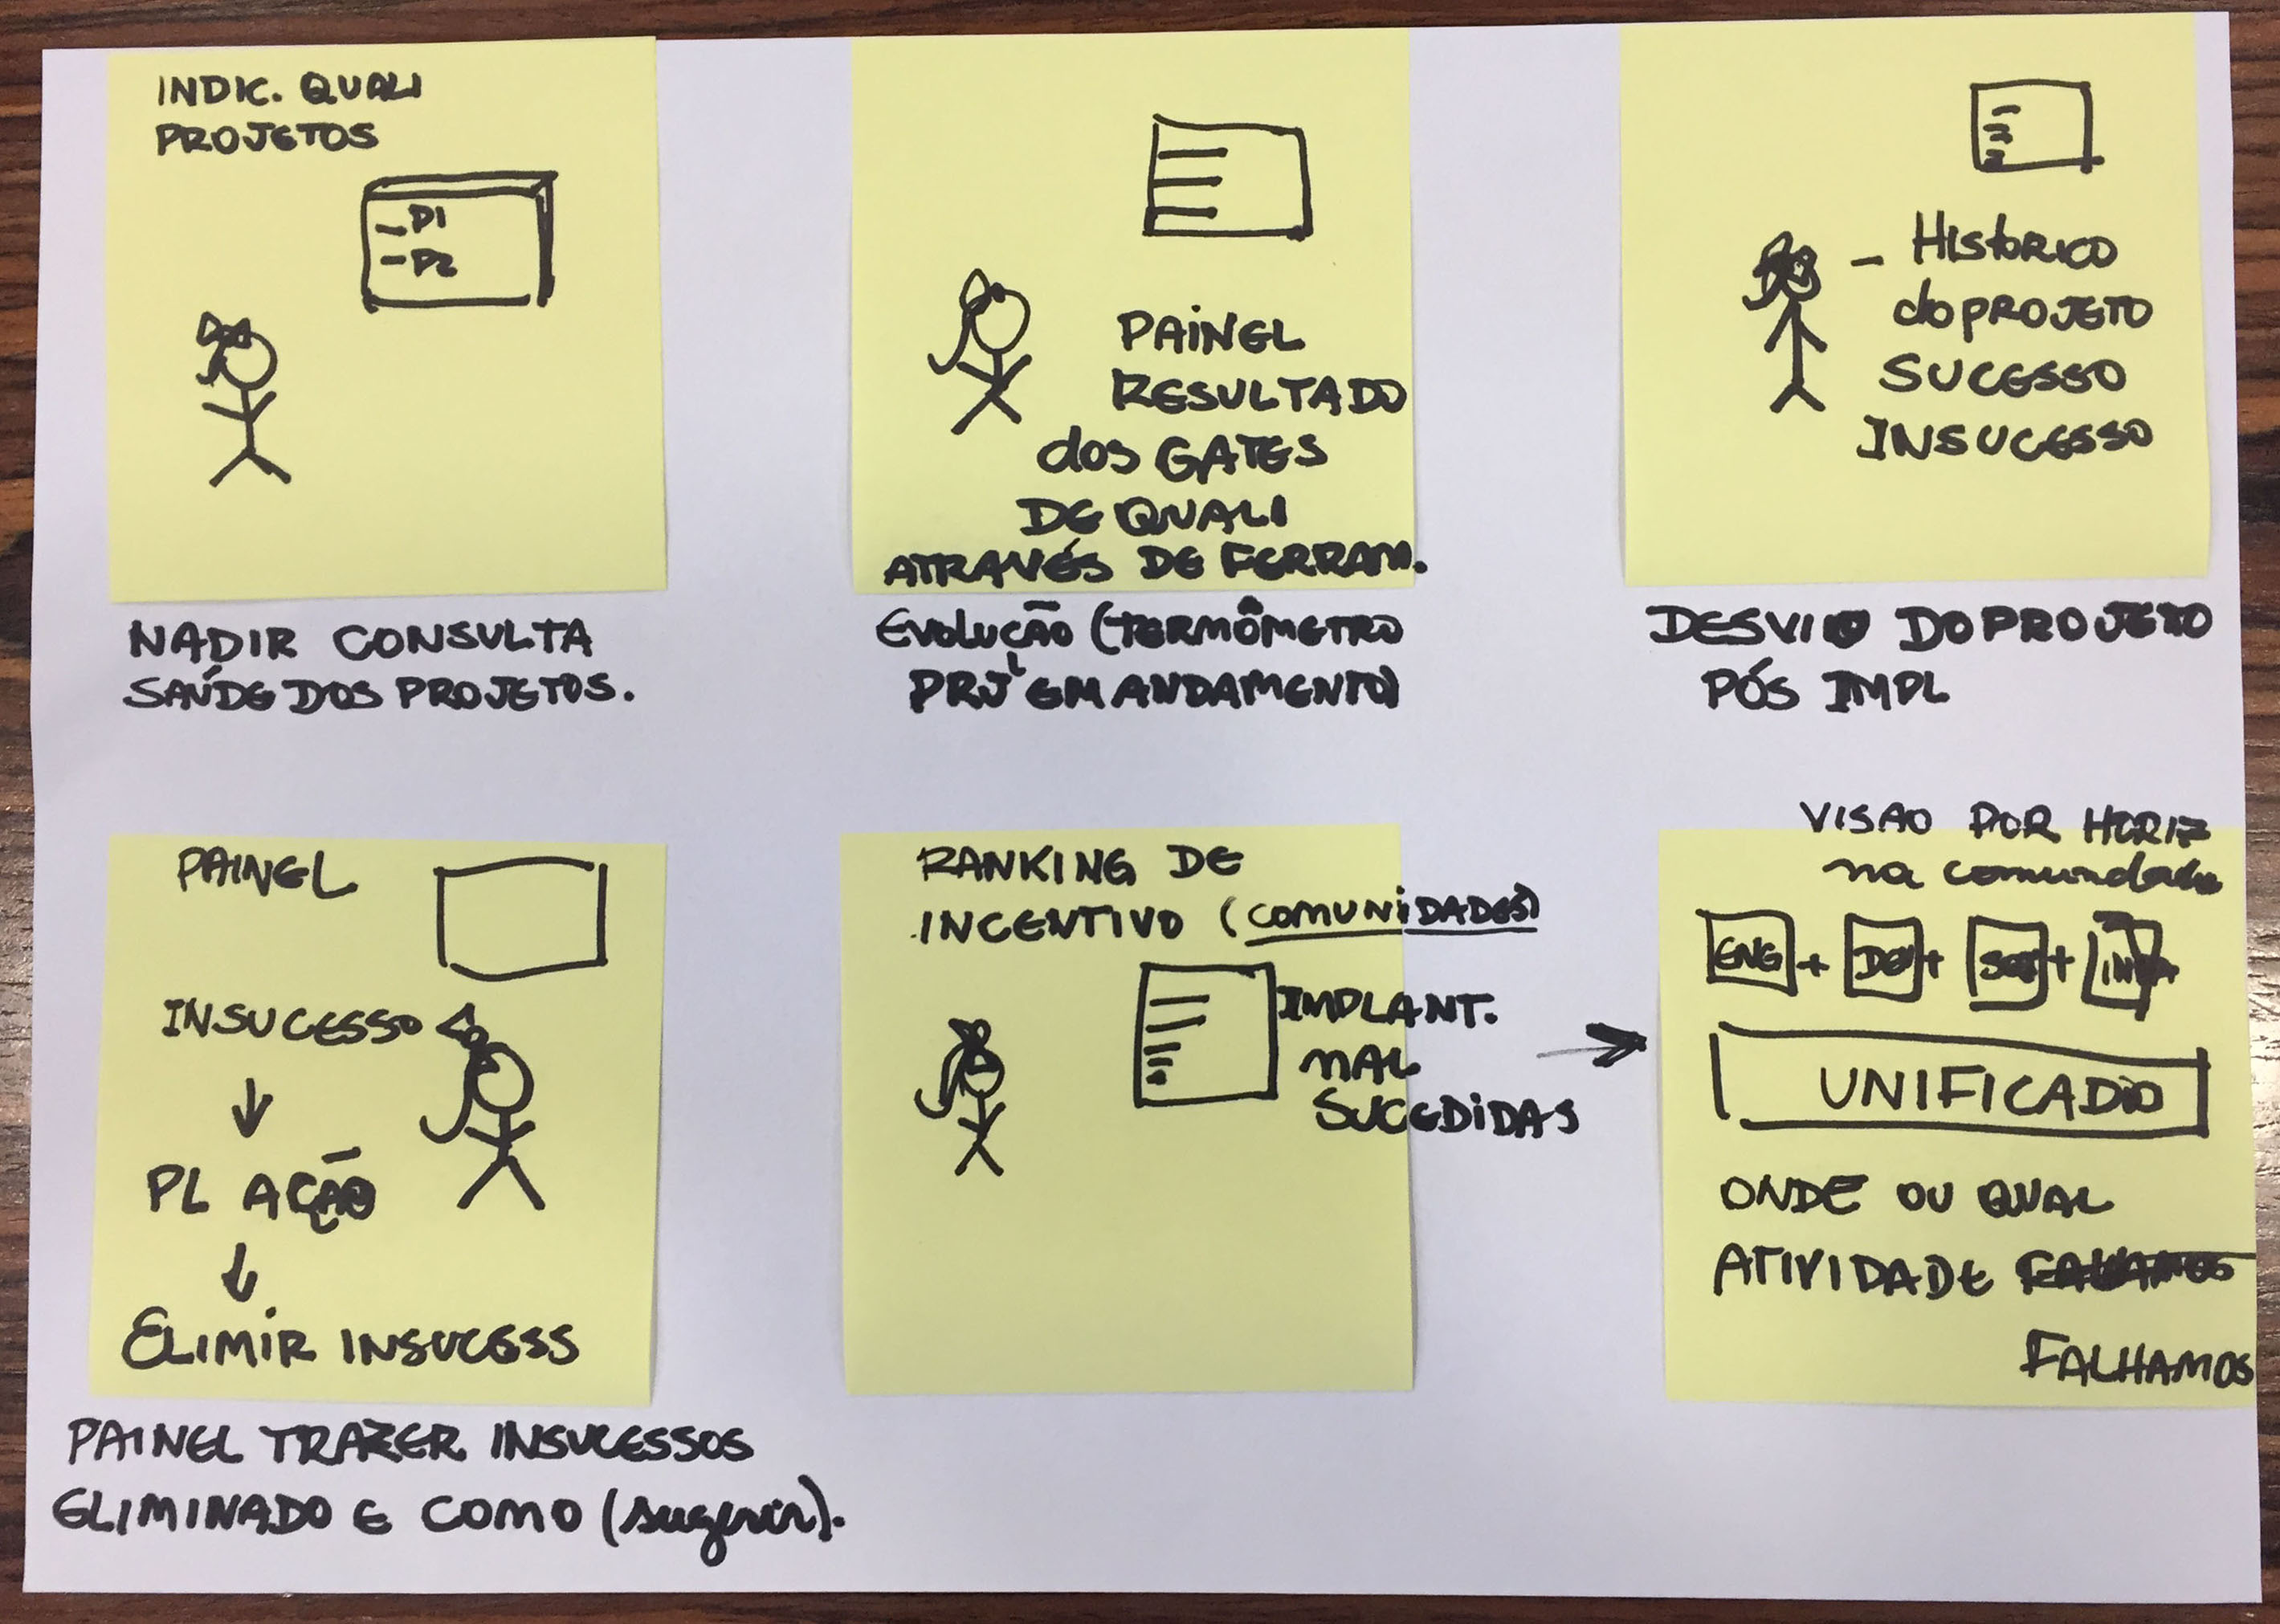 INDIC. QUALI
PROJETOS
- P1
- P2
NADIR CONSULTA
SAÚDE DOS PROJETOS.
PAINEL
RESULTADO
dos GATES
DE QUALI
ATRAVÉS DE FERRAM.
EVOLUÇÃO (TERMÔMETRO
PRJ EM ANDAMENTO)
- HISTORICO
do PROJETO
SUCESSO
INSUCESSO
DESVIO DO PROJETO
PÓS IMPL
PAINEL
INSUCESSO
PL AÇÃO
ELIMIR INSUCESS
PAINEL TRAZER INSUCESSOS
ELIMINADO E COMO (sugerir).
RANKING DE
INCENTIVO (COMUNIDADES)
IMPLANT.
MAL
SUCEDIDAS
VISAO POR HORIZ
na comunidade
ENG +
+
+
UNIFICADO
ONDE OU QUAL
ATIVIDADE FALHAMOS
FALHAMOS